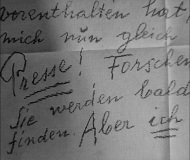 vorenthalten hat
mich nun gleich
Presse! Forschen
Sie werden bald
finden. Aber ich